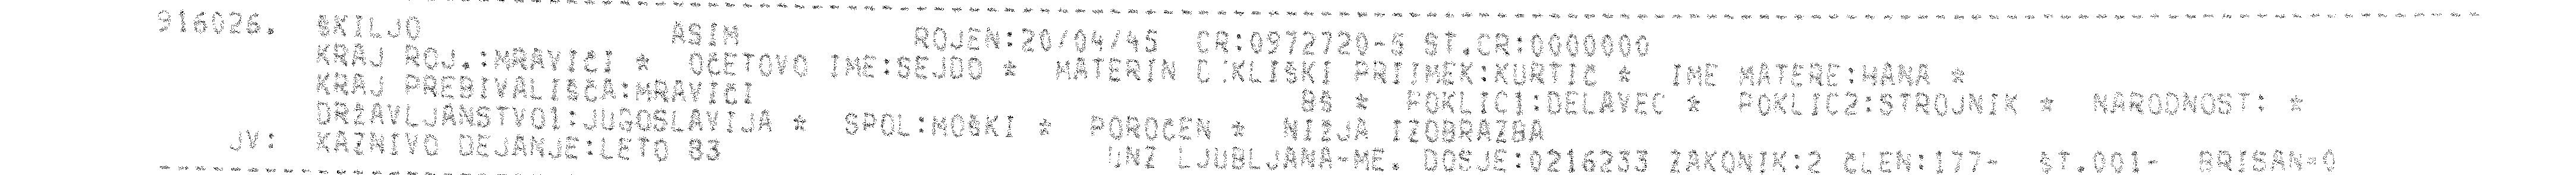 916026. ŠKILJO ASIM ROJEN:20/04/45 CR:0972720-S ST.CR:0000000
KRAJ ROJ.:MRAVIČI * OČETOVO IME:SEJDO * MATERIN DEKLIŠKI PRIIMEK:KURTIČ * IME MATERE:HANA *
KRAJ PREBIVALIŠČA:MRAVIČI 8S * POKLIC1:DELAVEC * POKLIC2:STROJNIK * NARODNOST: *
DRŽAVLJANSTVO1:JUGOSLAVIJA * SPOL:MOŠKI * POROČEN * NIŽJA IZOBRAZBA
JV: KAZNIVO DEJANJE:LETO 83 UNZ LJUBLJANA-ME. DOSJE:0216233 ZAKONIK:2 ČLEN:177- ŠT.001- BRISAN=0